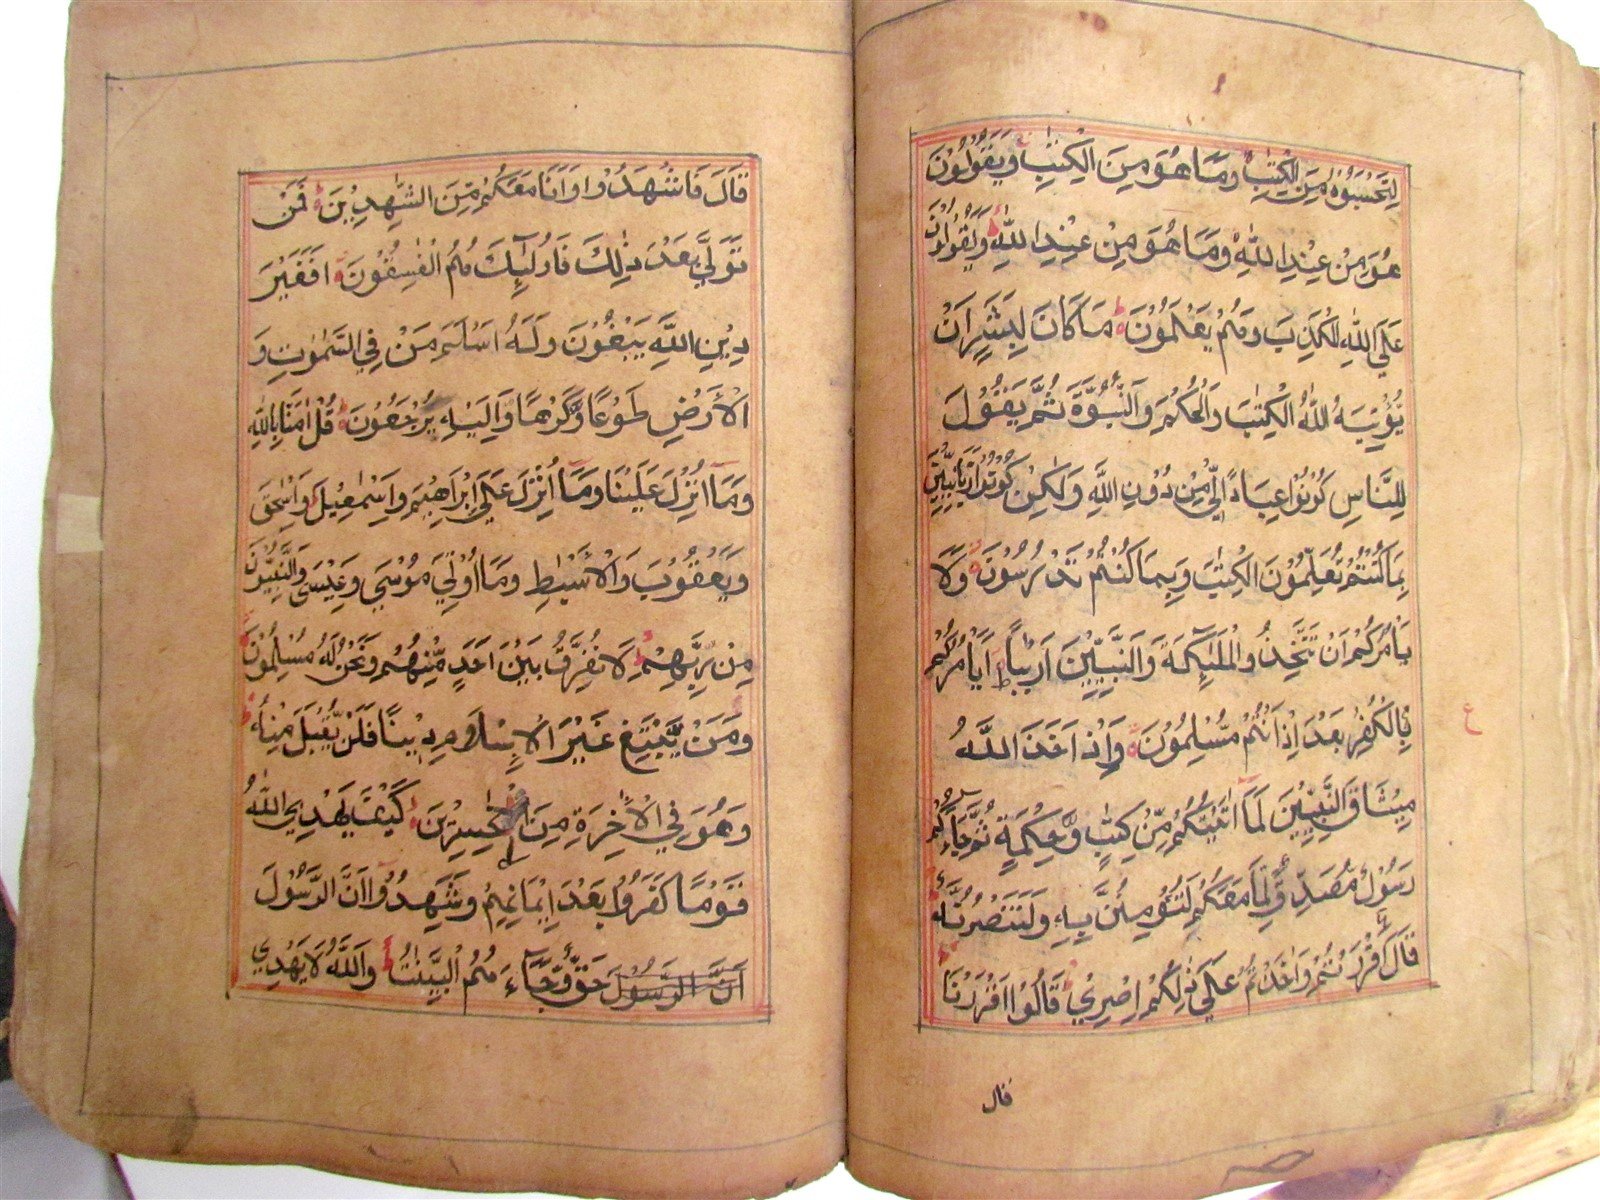 لِتَحْسَبُوْهُ مِنَ الْكِتٰبِ وَمَا هُوَ مِنَ الْكِتٰبِ وَيَقُوْلُوْنَ
هُوَ مِنْ عِنْدِ اللّٰهِ وَمَا هُوَ مِنْ عِنْدِ اللّٰهِ وَيَقُوْلُوْنَ
عَلَى اللّٰهِ الْكَذِبَ وَهُمْ يَعْلَمُوْنَ مَا كَانَ لِبَشَرٍ اَنْ
يُّؤْتِيَهُ اللّٰهُ الْكِتٰبَ وَالْحُكْمَ وَالنُّبُوَّةَ ثُمَّ يَقُوْلَ
لِلنَّاسِ كُوْنُوْا عِبَادًا لِّيْ مِنْ دُوْنِ اللّٰهِ وَلٰكِنْ كُوْنُوْا رَبَّانِيّٖنَ
بِمَا كُنْتُمْ تُعَلِّمُوْنَ الْكِتٰبَ وَبِمَا كُنْتُمْ تَدْرُسُوْنَ وَلَا
يَأْمُرَكُمْ اَنْ تَتَّخِذُوا الْمَلٰٓئِكَةَ وَالنَّبِيّٖنَ اَرْبَابًا اَيَأْمُرُكُمْ
بِالْكُفْرِ بَعْدَ اِذْ اَنْتُمْ مُّسْلِمُوْنَ وَاِذْ اَخَذَ اللّٰهُ
ع
مِيْثَاقَ النَّبِيّٖنَ لَمَا اٰتَيْتُكُمْ مِّنْ كِتٰبٍ وَّحِكْمَةٍ ثُمَّ جَآءَكُمْ
رَسُوْلٌ مُّصَدِّقٌ لِّمَا مَعَكُمْ لَتُؤْمِنُنَّ بِهٖ وَلَتَنْصُرُنَّهٗ
قَالَ ءَاَقْرَرْتُمْ وَاَخَذْتُمْ عَلٰى ذٰلِكُمْ اِصْرِيْ قَالُوْا اَقْرَرْنَا
قال
قَالَ فَاشْهَدُوْا وَاَنَا مَعَكُمْ مِّنَ الشّٰهِدِيْنَ فَمَنْ
تَوَلّٰى بَعْدَ ذٰلِكَ فَاُولٰٓئِكَ هُمُ الْفٰسِقُوْنَ اَفَغَيْرَ
دِيْنِ اللّٰهِ يَبْغُوْنَ وَلَهٗ اَسْلَمَ مَنْ فِي السَّمٰوٰتِ وَ
الْاَرْضِ طَوْعًا وَّكَرْهًا وَّاِلَيْهِ يُرْجَعُوْنَ قُلْ اٰمَنَّا بِاللّٰهِ
وَمَا اُنْزِلَ عَلَيْنَا وَمَا اُنْزِلَ عَلٰى اِبْرَاهِيْمَ وَاِسْمٰعِيْلَ وَاِسْحٰقَ
وَيَعْقُوْبَ وَالْاَسْبَاطِ وَمَا اُوْتِيَ مُوْسٰى وَعِيْسٰى وَالنَّبِيُّوْنَ
مِنْ رَّبِّهِمْ لَا نُفَرِّقُ بَيْنَ اَحَدٍ مِّنْهُمْ وَنَحْنُ لَهٗ مُسْلِمُوْنَ
وَمَنْ يَّبْتَغِ غَيْرَ الْاِسْلَامِ دِيْنًا فَلَنْ يُّقْبَلَ مِنْهُ
وَهُوَ فِي الْاٰخِرَةِ مِنَ الْخٰسِرِيْنَ كَيْفَ يَهْدِي اللّٰهُ
قَوْمًا كَفَرُوْا بَعْدَ اِيْمَانِهِمْ وَشَهِدُوْا اَنَّ الرَّسُوْلَ
اَنَّ الرَّسُوْلَ حَقٌّ وَّجَآءَهُمُ الْبَيِّنٰتُ وَاللّٰهُ لَا يَهْدِي